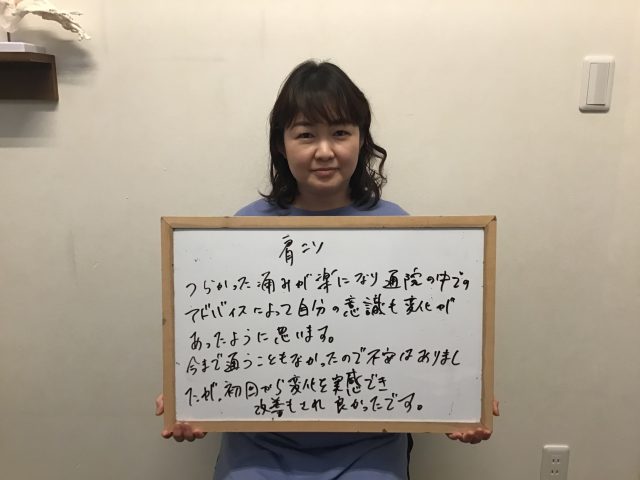 肩こり
つらかった痛みが楽になり通院の中での
アドバイスによって自分の意識も変化が
あったように思います。
今まで通うこともなかったので不安はありまし
たが、初回から変化を実感でき
改善もされ良かったです。